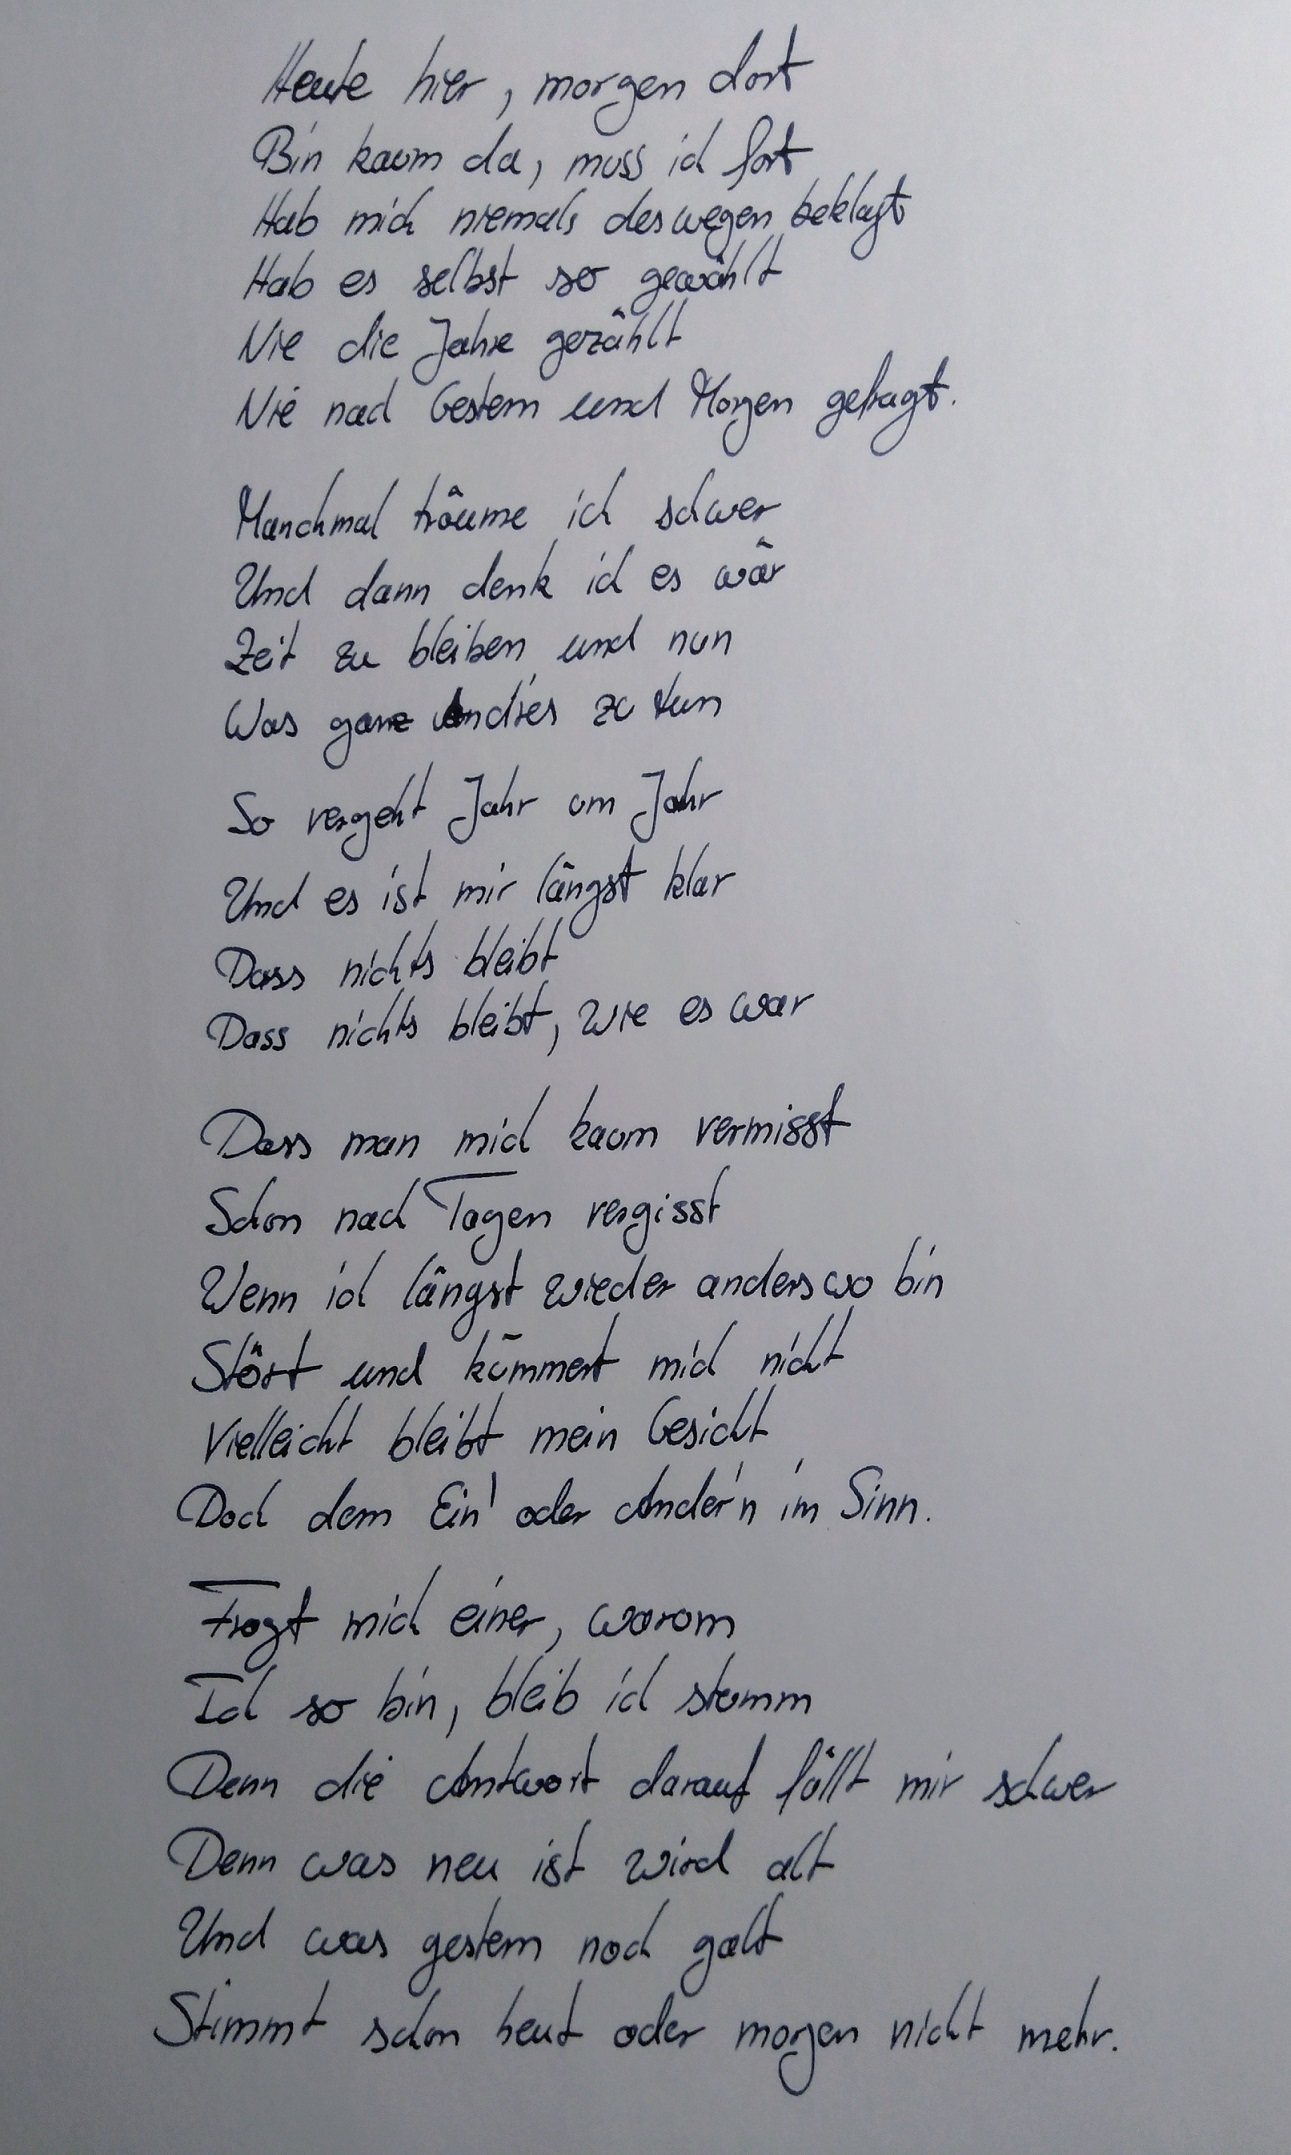 Heute hier, morgen dort
Bin kaum da, muss ich fort
Hab mich niemals deswegen beklagt
Hab es selbst so gewählt
Nie die Jahre gezählt
Nie nach Gestern und Morgen gefragt.
Manchmal träume ich schwer
Und dann denk ich es wär
Zeit zu bleiben und nun
Was ganz And'res zu tun
So vergeht Jahr um Jahr
Und es ist mir längst klar
Dass nichts bleibt
Dass nichts bleibt, wie es war
Dass man mich kaum vermisst
Schon nach Tagen vergisst
Wenn ich längst wieder anderswo bin
Stört und kümmert mich nicht
Vielleicht bleibt mein Gesicht
Doch dem Ein' oder Ander'n im Sinn.
Fragt mich einer, warum
Ich so bin, bleib ich stumm
Denn die Antwort darauf fällt mir schwer
Denn was neu ist wird alt
Und was gestern noch galt
Stimmt schon heut oder morgen nicht mehr.